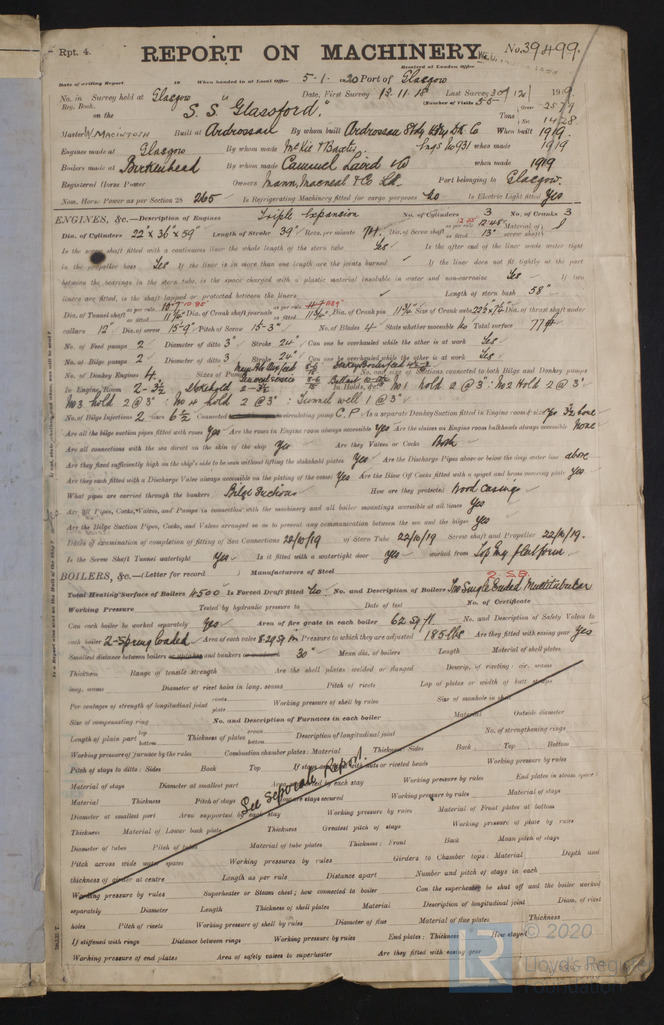 Rpt. 4.
REPORT ON MACHINERY. No. 39499.
Received at London Office
Date of writing Report 19 When handed in at Local Office 5-1-1920 Port of Glasgow
No. in Survey held at Glasgow Date, First Survey 13.11.18 Last Survey 30/12/1919
Reg. Book. (Number of Visits 55
on the S. S. "Glassford." Tons Gross 2579 Net 1428
Master W. Macintosh Built at Ardrossan By whom built Ardrossan When built 1919.
Engines made at Glasgow By whom made McKie & Baxter when made 1919
Boilers made at Birkenhead By whom made Cammell Laird & Co when made 1919
Registered Horse Power Owners Mann, Macneal & Co Ld. Port belonging to Glasgow.
Nom. Horse Power as per Section 28 265 Is Refrigerating Machinery fitted for cargo purposes No Is Electric Light fitted Yes
ENGINES, &c.—Description of Engines Triple Expansion No. of Cylinders 3 No. of Cranks 3
Dia. of Cylinders 22" x 36" x 59" Length of Stroke 39" Revs. per minute 74 Dia. of Screw shaft as per rule as fitted 13" Material of screw shaft
Is the screw shaft fitted with a continuous liner the whole length of the stern tube Yes Is the after end of the liner made water tight
in the propeller boss Yes If the liner is in more than one length are the joints burned If the liner does not fit tightly at the part
between the bearings in the stern tube, is the space charged with a plastic material insoluble in water and non-corrosive Yes If two
liners are fitted, is the shaft lapped or protected between the liners Length of stern bush 58"
Dia. of Tunnel shaft as per rule as fitted Dia. of Crank shaft journals as per rule as fitted Dia. of Crank pin 11¾" Size of Crank webs Dia. of thrust shaft under
collars 12" Dia. of screw 15-9" Pitch of Screw 15-3" No. of Blades 4 State whether moveable No Total surface 77 #
No. of Feed pumps 2 Diameter of ditto 3" Stroke 24" Can one be overhauled while the other is at work Yes
No. of Bilge pumps 2 Diameter of ditto 3" Stroke 24" Can one be overhauled while the other is at work Yes
No. of Donkey Engines 4 Sizes of Pumps No. and size of Suctions connected to both Bilge and Donkey pumps
In Engine Room 2 - 3½ Stokehold 2 - 3½ In Holds, &c. No 1 hold 2 @ 3" : No 2 Hold 2 @ 3"
No 3 hold 2 @ 3" : No 4 hold 2 @ 3" : Tunnel well 1 @ 3"
No. of Bilge Injections 2 sizes 6½ Connected circulating pump C.P. Is a separate Donkey Suction fitted in Engine room & size Yes
Are all the bilge suction pipes fitted with roses Yes Are the roses in Engine room always accessible Yes Are the sluices on Engine room bulkheads always accessible None
Are all connections with the sea direct on the skin of the ship Yes Are they Valves or Cocks Both
Are they fixed sufficiently high on the ship's side to be seen without lifting the stokehold plates Yes Are the Discharge Pipes above or below the deep water line above
Are they each fitted with a Discharge Valve always accessible on the plating of the vessel Yes Are the Blow Off Cocks fitted with a spigot and brass covering plate Yes
What pipes are carried through the bunkers Bilge Suctions How are they protected Wood Casings
Are all Pipes, Cocks, Valves, and Pumps in connection with the machinery and all boiler mountings accessible at all times Yes
Are the Bilge Suction Pipes, Cocks, and Valves arranged so as to prevent any communication between the sea and the bilges Yes
Dates of examination of completion of fitting of Sea Connections 22/10/19 of Stern Tube 22/10/19 Screw shaft and Propeller 22/10/19.
Is the Screw Shaft Tunnel watertight Yes Is it fitted with a watertight door yes worked from Top Eng platform
2 S.B.
BOILERS, &c.—(Letter for record ) Manufacturers of Steel
Total Heating Surface of Boilers 4500 Is Forced Draft fitted No. No. and Description of Boilers Two Single Ended Multitubular
Working Pressure Tested by hydraulic pressure to Date of test No. of Certificate
Can each boiler be worked separately Yes Area of fire grate in each boiler 62 sq ft No. and Description of Safety Valves to
each boiler 2-Spring loaded Area of each valve 8.29 sq in Pressure to which they are adjusted 185 lbs Are they fitted with easing gear Yes
Smallest distance between boilers or uptakes and bunkers or woodwork 30" Mean dia. of boilers Length Material of shell plates
Thickness Range of tensile strength Are the shell plates welded or flanged Descrip. of riveting: cir. seams
long. seams Diameter of rivet holes in long. seams Pitch of rivets Lap of plates or width of butt straps
Per centages of strength of longitudinal joint rivets plate Working pressure of shell by rules Size of manhole in shell
Size of compensating ring No. and Description of Furnaces in each boiler Material Outside diameter
Length of plain part top bottom Thickness of plates crown bottom Description of longitudinal joint No. of strengthening rings
Working pressure of furnace by the rules Combustion chamber plates: Material Thickness: Sides Back Top Bottom
Pitch of stays to ditto: Sides Back Top If stays are fitted with nuts or riveted heads Working pressure by rules
Material of stays Diameter at smallest part Area supported by each stay Working pressure by rules End plates in steam space:
See Separate Report.
Material Thickness Pitch of stays How are stays secured Working pressure by rules Material of stays
Diameter at smallest part Area supported by each stay Working pressure by rules Material of Front plates at bottom
Thickness Material of Lower back plate Thickness Greatest pitch of stays Working pressure of plate by rules
Diameter of tubes Pitch of tubes Material of tube plates Thickness: Front Back Mean pitch of stays
Pitch across wide water spaces Working pressures by rules Girders to Chamber tops: Material Depth and
thickness of girder at centre Length as per rule Distance apart Number and pitch of stays in each
Working pressure by rules Superheater or Steam chest; how connected to boiler Can the superheater be shut off and the boiler worked
separately Diameter Length Thickness of shell plates Material Description of longitudinal joint Diam. of rivet
holes Pitch of rivets Working pressure of shell by rules Diameter of flue Material of flue plates Thickness
If stiffened with rings Distance between rings Working pressure by rules End plates: Thickness How stayed
Working pressure of end plates Area of safety valves to superheater Are they fitted with easing gear
© 2020
Lloyd's Register
Foundation